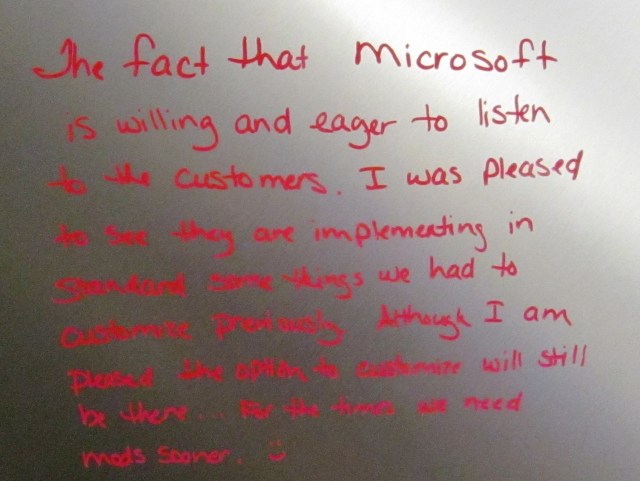 The fact that Microsoft
is willing and eager to listen
to the customers. I was pleased
to see they are implementing in
standard some things we had to
customize previously. Although I am
pleased the option to customize will still
be there... For the times we need
mods sooner. :)